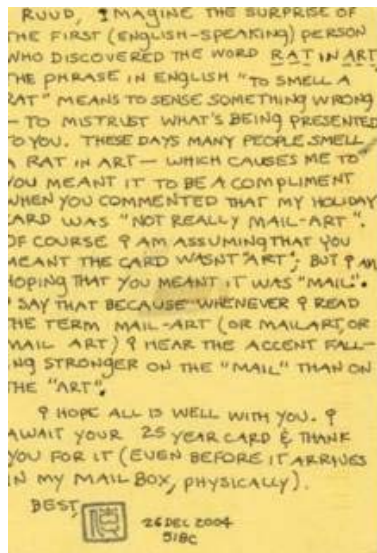 RUUD, I MAGINE THE SURPRISE OF
THE FIRST (ENGLISH-SPEAKING) PERSON
WHO DISCOVERED THE WORD RAT IN ART
THE PHRASE IN ENGLISH "TO SMELL A
RAT" MEANS TO SENSE SOMETHING WRONG
- TO MISTRUST WHAT'S BEING PRESENTED
TO YOU. THESE DAYS MANY PEOPLE SMELL
A RAT IN ART — WHICH CAUSES ME TO
YOU MEANT IT TO BE A COMPLIMENT
WHEN YOU COMMENTED THAT MY HOLIDAY
CARD WAS "NOT REALLY MAIL-ART".
OF COURSE I AM ASSUMING THAT YOU
MEANT THE CARD WASNT "ART"; BUT I AM
HOPING THAT YOU MEANT IT WAS "MAIL".
I SAY THAT BECAUSE WHENEVER I READ
THE TERM MAIL-ART (OR MAILART, OR
MAIL ART) I HEAR THE ACCENT FALL-
ING STRONGER ON THE "MAIL" THAN ON
THE "ART".
I HOPE ALL IS WELL WITH YOU. I
AWAIT YOUR 25 YEAR CARD & THANK
YOU FOR IT (EVEN BEFORE IT ARRIVES
IN MY MAIL BOX, PHYSICALLY).
BEST,
26 DEC 2004